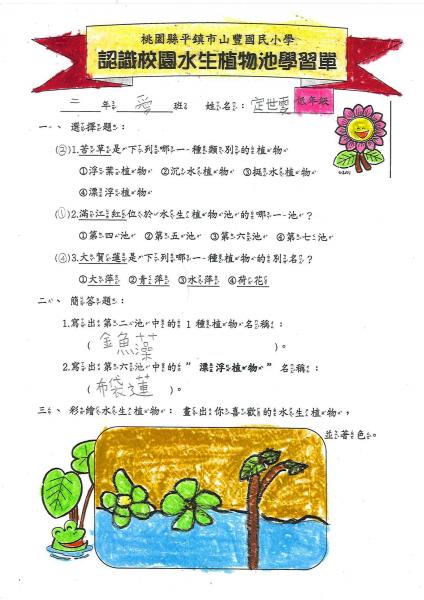 桃園縣平鎮市山豐國民小學
認識校園水生植物池學習單
二 年 愛 班 姓名： 定世雯 低年級
一、 選擇題：
(②)1.苦草是下列哪一種類別的植物
①浮葉植物 ②沉水植物 ③挺水植物
④漂浮植物
(①)2.滿江紅位於水生植物池的哪一池？
①第四池 ②第五池 ③第六池 ④第七池
(④)3.大賀蓮是下列哪一種植物的別名？
①大萍 ②青萍 ③水萍 ④荷花
二、 簡答題：
1.寫出第二池中的 1 種植物名稱：
( 金魚藻 )。
2.寫出第六池中的“ 漂浮植物 ” 名稱：
( 布袋蓮 )。
三、 彩繪水生植物： 畫出你喜歡的水生植物，
並著色。